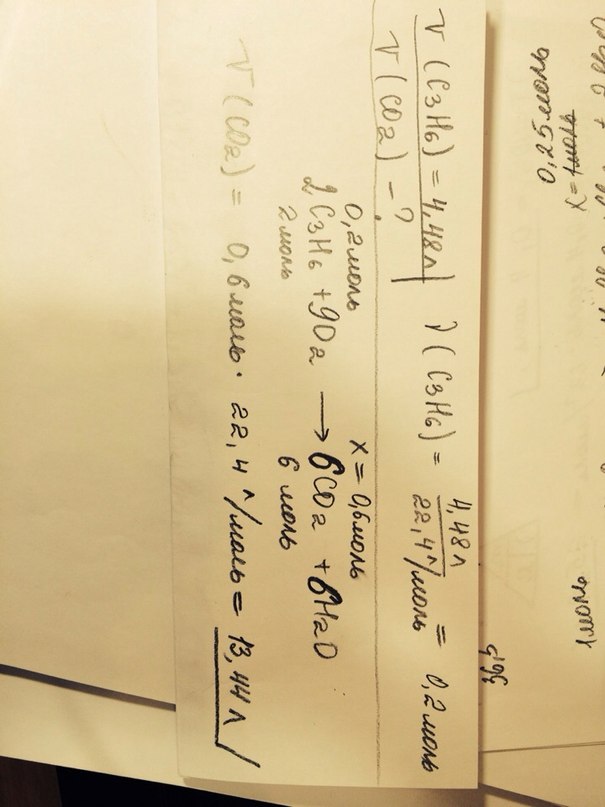 V(C3H6) = 4,48л
V(CO2) - ?
ν(C3H6) = 4,48л / 22,4 л/моль = 0,2 моль
0,2 моль x = 0,6 моль
2C3H6 + 9O2 → 6CO2 + 6H2O
2 моль 6 моль
V(CO2) = 0,6 моль · 22,4 л/моль = 13,44 л
0,25 моль
x = 1 моль
1 моль